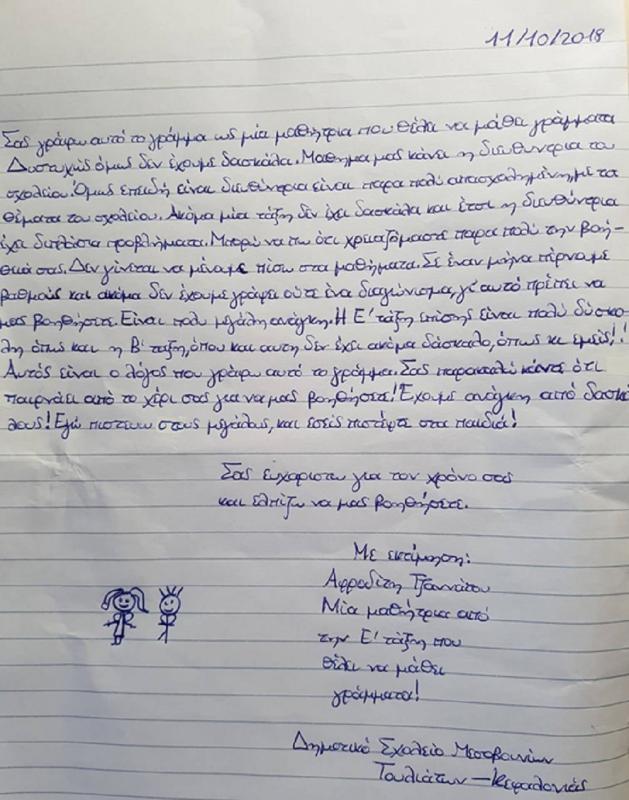 11/10/2018
Σας γράφω αυτό το γράμμα ως μία μαθήτρια που θέλει να μάθει γράμματα
Δυστυχώς όμως δεν έχουμε δασκάλα. Μάθημα μας κάνει η διευθύντρια του
σχολείου. Όμως επειδή είναι διευθύντρια είναι παρα πολύ απασχολημένη με τα
θέματα του σχολείου. Ακόμα μία τάξη δεν έχει δασκάλα και έτσι η διευθύντρια
έχει διπλάσια προβλήματα. Μπορώ να πω ότι χρειαζόμαστε παρα πολύ την βοή-
θειά σας. Δεν γίνεται να μένουμε πίσω στα μαθήματα. Σε έναν μήνα πέρνουμε
βαθμούς και ακόμα δεν έχουμε γράψει ούτε ένα διαγώνισμα, γι' αυτό πρέπει να
μας βοηθήσετε. Είναι πολύ μεγάλη ανάγκη. Η Ε' τάξη επίσης είναι πολύ δύσκο-
λη όπως και η Β' τάξη, όπου και αυτη δεν έχει ακόμα δάσκαλο, όπως κι εμείς!!
Αυτός είναι ο λόγος που γράφω αυτό το γράμμα. Σας παρακαλώ κάντε ότι
παιρνάει από το χέρι σας για να μας βοηθήσετε! Έχουμε ανάγκη από δασκά
λους! Εγώ πιστευω στους μεγάλους, και εσείς πιστέψτε στα παιδιά!
Σας ευχαριστω για τον χρόνο σας
και ελπίζω να μας βοηθήσετε.
Με εκτίμηση:
Αφροδίτη Τζαννάτου
Μία μαθήτρια από
την Ε' τάξη που
θέλει να μάθει
γράμματα!
Δημοτικό Σχολείο Μεσοβουνίων
Τουλιάτων – Κεφαλονιάς